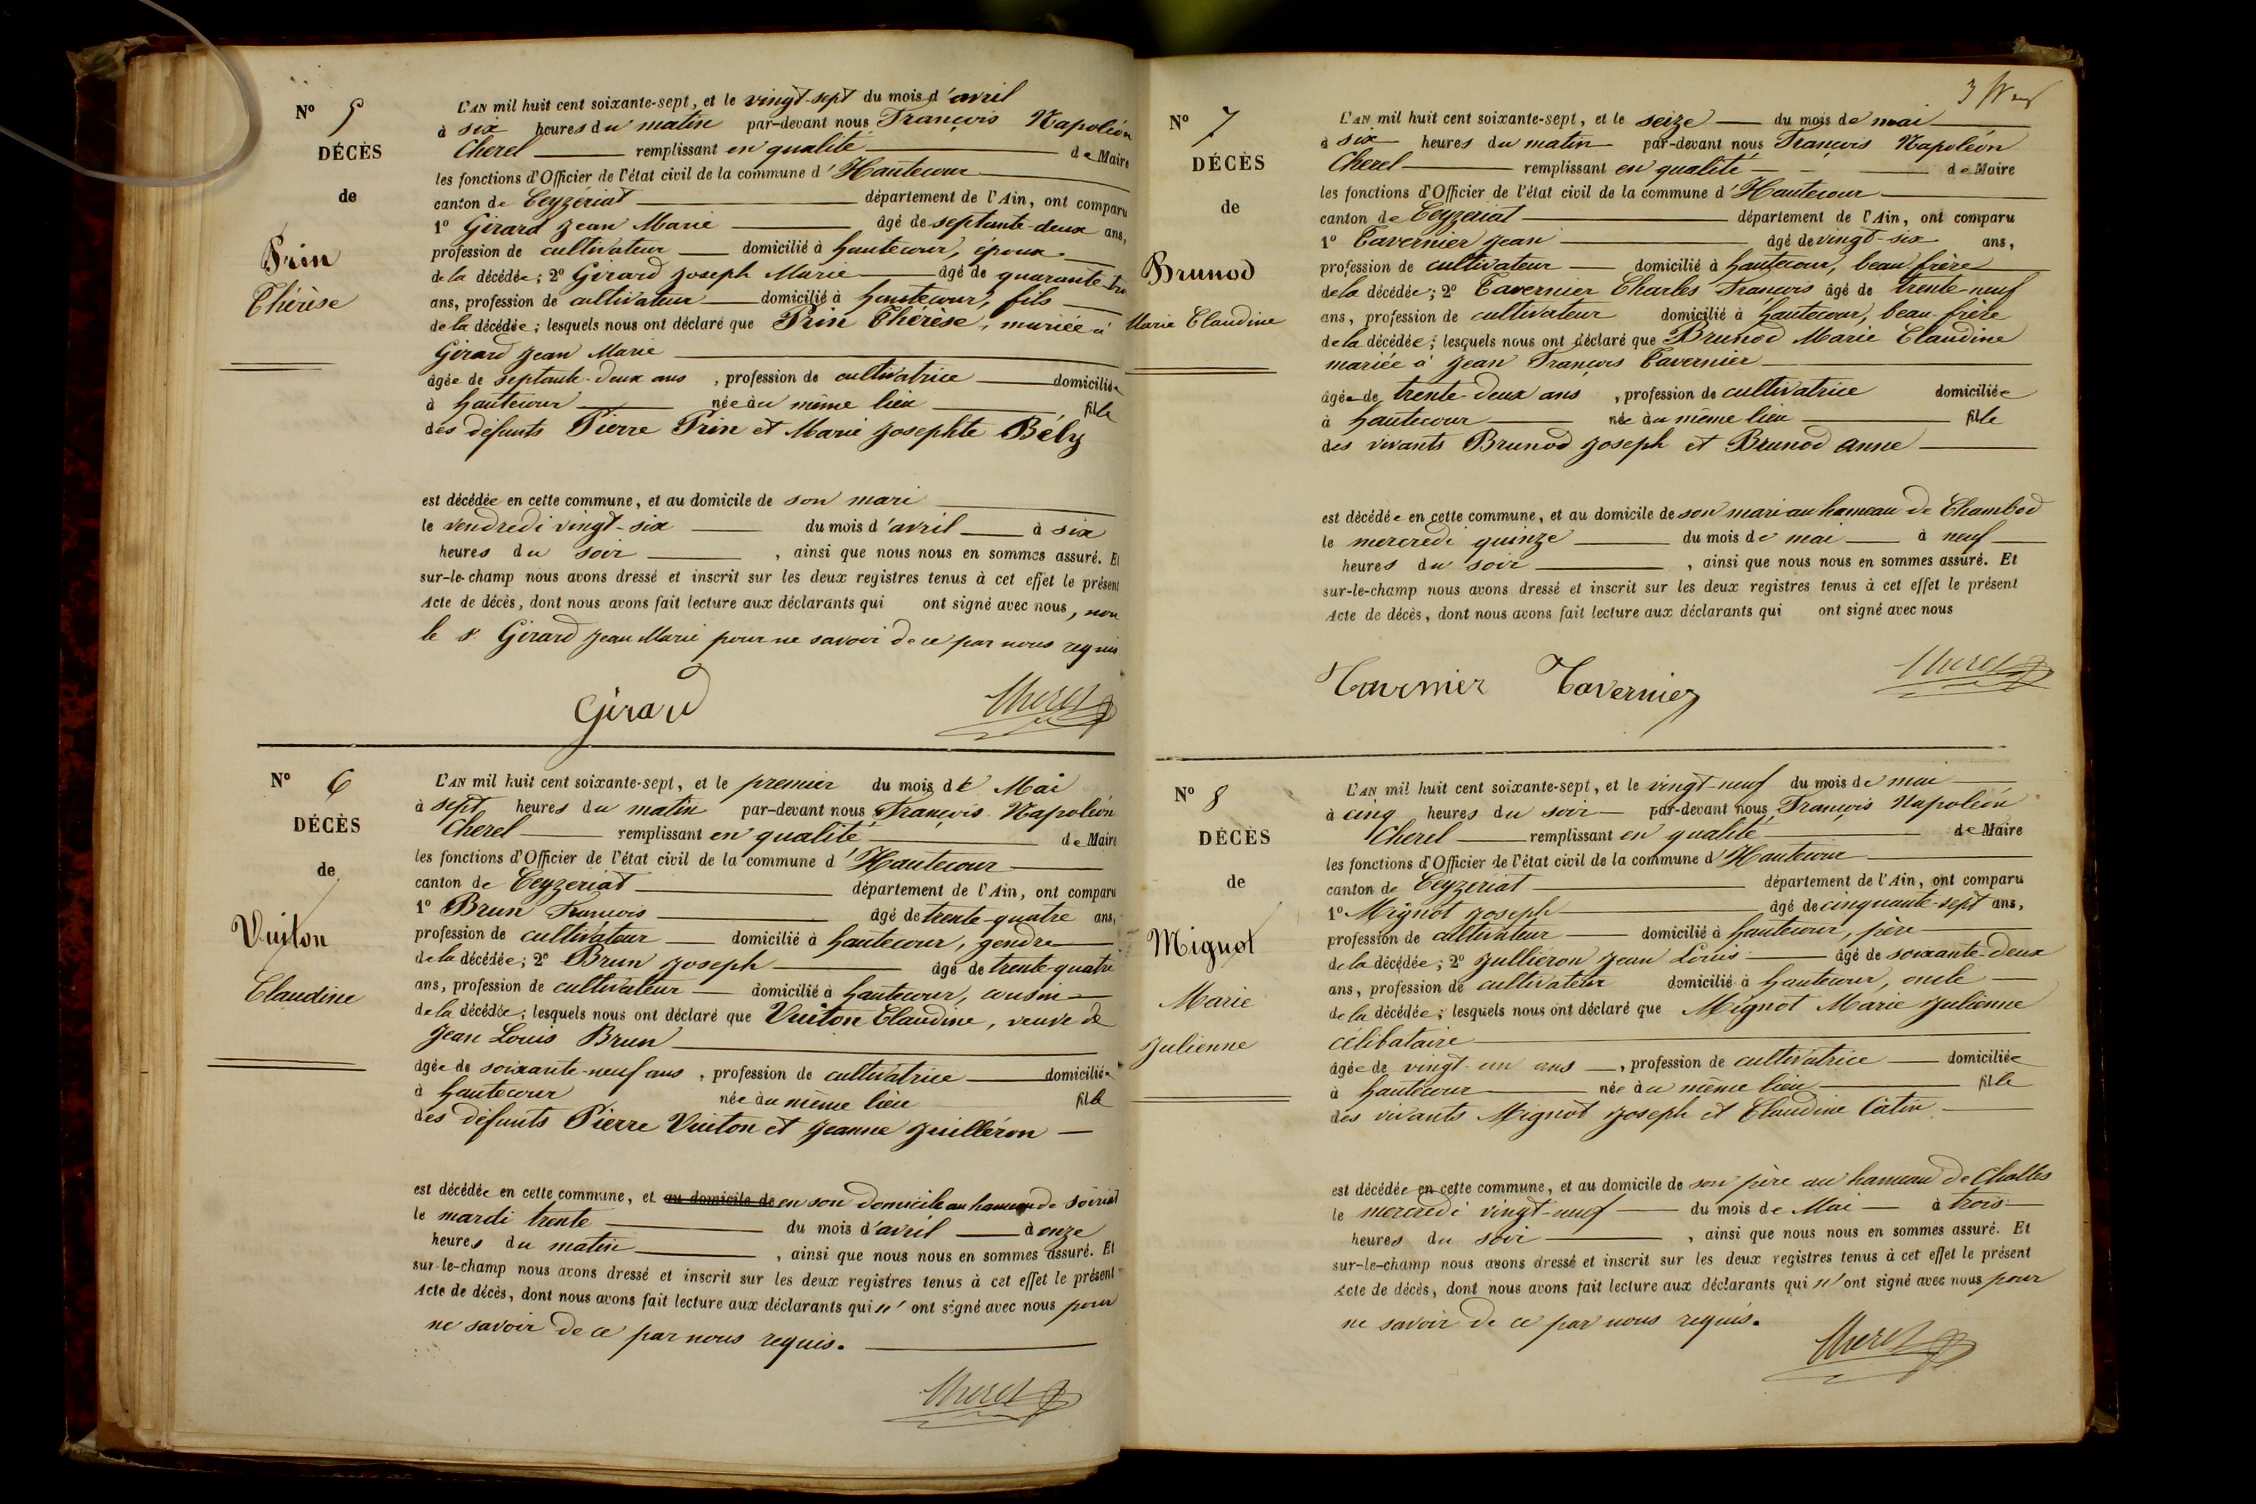 Nº 5
DÉCÈS
de
Prin
Thérèse
L'AN mil huit cent soixante-sept, et le vingt-sept du mois d'avril
à six heures du matin par-devant nous François Napoléon
Cherel remplissant en qualité de Maire
les fonctions d'Officier de l'état civil de la commune d'Hautecour
canton de Ceyzériat département de l'Ain, ont comparu
1º Girard Jean Marie âgé de septante-deux ans,
profession de cultivateur domicilié à hautecour, époux
de la décédée; 2º Girard Joseph Marie âgé de quarante-tro
ans, profession de cultivateur domicilié à hautecour, fils
de la décédée; lesquels nous ont déclaré que Prin Thérèse, mariée à
Girard Jean Marie
âgée de septante-deux ans, profession de cultivatrice domiciliée
à hautecour née au même lieu fille
des défunts Pierre Prin et Marie Josephte Bély
est décédée en cette commune, et au domicile de son mari
le vendredi vingt-six du mois d'avril à six
heures du soir, ainsi que nous nous en sommes assuré. Et
sur-le-champ nous avons dressé et inscrit sur les deux registres tenus à cet effet le présent
Acte de décès, dont nous avons fait lecture aux déclarants qui ont signé avec nous, non
le sr Girard Jean Marie pour ne savoir de ce par nous requis
Girard Cherel
Nº 6
DÉCÈS
de
Vuiton
Claudine
L'AN mil huit cent soixante-sept, et le premier du mois de Mai
à sept heures du matin par-devant nous François Napoléon
Cherel remplissant en qualité de Maire
les fonctions d'Officier de l'état civil de la commune d'Hautecour
canton de Ceyzeriat département de l'Ain, ont comparu
1º Brun François âgé de trente-quatre ans,
profession de cultivateur domicilié à hautecour, gendre
de la décédée; 2º Brun Joseph âgé de trente-quatre
ans, profession de cultivateur domicilié à hautecour, cousin
de la décédée; lesquels nous ont déclaré que Vuiton Claudine, veuve de
Jean Louis Brun
âgée de soixante-neuf ans, profession de cultivatrice domiciliée
à hautecour née au même lieu fille
des défunts Pierre Vuiton et Jeanne Juilléron
est décédée en cette commune, et au domicile de en son domicile au hameau de
le mardi trente du mois d'avril à onze
heures du matin, ainsi que nous nous en sommes assuré. Et
sur-le-champ nous avons dressé et inscrit sur les deux registres tenus à cet effet le présent
Acte de décès, dont nous avons fait lecture aux déclarants qui n'ont signé avec nous pour
ne savoir de ce par nous requis.
Cherel
3
Nº 7
DÉCÈS
de
Brunod
Marie Claudine
L'AN mil huit cent soixante-sept, et le seize du mois de mai
à six heures du matin par-devant nous François Napoléon
Cherel remplissant en qualité de Maire
les fonctions d'Officier de l'état civil de la commune d'Hautecour
canton de Ceyzeriat département de l'Ain, ont comparu
1º Tavernier Jean âgé de vingt-six ans,
profession de cultivateur domicilié à hautecour, beau frère
de la décédée; 2º Tavernier Charles François âgé de trente-neuf
ans, profession de cultivateur domicilié à hautecour, beau-frère
de la décédée; lesquels nous ont déclaré que Brunod Marie Claudine
mariée à Jean François Tavernier
âgée de trente-deux ans, profession de cultivatrice domiciliée
à hautecour née au même lieu fille
des vivants Brunod Joseph et Brunod anne
est décédée en cette commune, et au domicile de son mari au hameau de Chambod
le mercredi quinze du mois de mai à neuf
heures du soir, ainsi que nous nous en sommes assuré. Et
sur-le-champ nous avons dressé et inscrit sur les deux registres tenus à cet effet le présent
Acte de décès, dont nous avons fait lecture aux déclarants qui ont signé avec nous
Tavernier Tavernier Cherel
Nº 8
DÉCÈS
de
Mignot
Marie
Julienne
L'AN mil huit cent soixante-sept, et le vingt-neuf du mois de mai
à cinq heures du soir par-devant nous François Napoléon
Cherel remplissant en qualité de Maire
les fonctions d'Officier de l'état civil de la commune d'Hautecour
canton de Ceyzeriat département de l'Ain, ont comparu
1º Mignot Joseph âgé de cinquante-sept ans,
profession de cultivateur domicilié à hautecour, père
de la décédée; 2º Jullieron Jean Louis âgé de soixante-deux
ans, profession de cultivateur domicilié à hautecour, oncle
de la décédée; lesquels nous ont déclaré que Mignot Marie Julienne
célibataire
âgée de vingt-un ans, profession de cultivatrice domiciliée
à hautecour née au même lieu fille
des vivants Mignot Joseph et Claudine Catin
est décédée en cette commune, et au domicile de son père au hameau de Challes
le mercredi vingt-neuf du mois de Mai à trois
heures du soir, ainsi que nous nous en sommes assuré. Et
sur-le-champ nous avons dressé et inscrit sur les deux registres tenus à cet effet le présent
Acte de décès, dont nous avons fait lecture aux déclarants qui n'ont signé avec nous pour
ne savoir de ce par nous requis.
Cherel